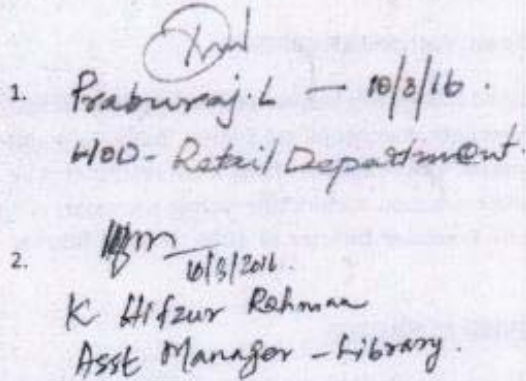 1. Praburaj.L - 10/3/16.
HOD - Retail Department.
2.
10/3/2016.
K Hifzur Rahman
Asst Manager - Library.